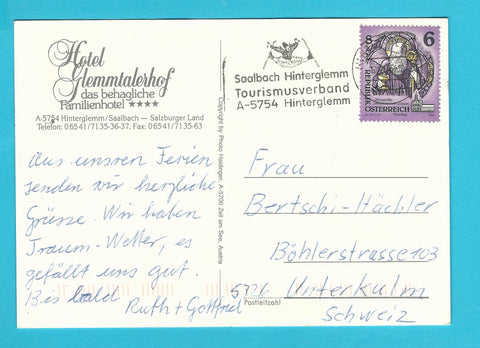 Hotel
Glemmtalerhof
das behagliche
Familienhotel ****
A-5754 Hinterglemm/Saalbach — Salzburger Land
Telefon: 0 65 41/71 35-36-37, Fax: 0 65 41/71 35-63
Aus unsren Ferien
senden wir herzliche
Grüsse. Wir haben
Traum-Wetter, es
gefällt uns gut.
Bis bald
Ruth + Gottfried
Copyright by Photo Haidinger, A-5700 Zell am See, Austria
Saalbach Hinterglemm
Tourismusverband
A-5754 Hinterglemm
S 6
REPUBLIK
ÖSTERREICH
Frau
Bertschi-Hächler
Böhlerstrasse 103
5726 Unterkulm
Postleitzahl
Schweiz